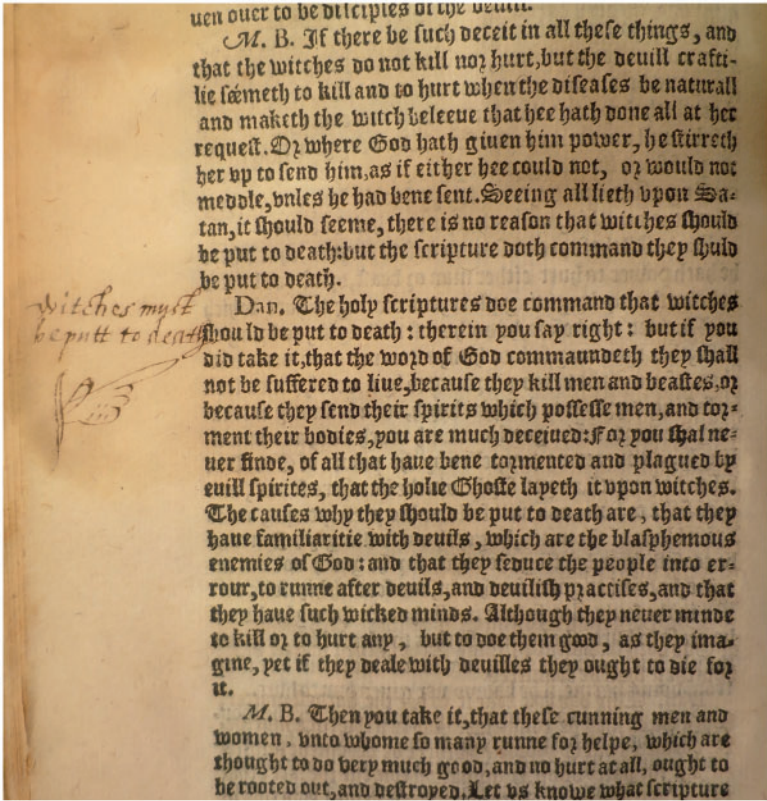 uen ouer to be disciples of the deuill.
M. B. If there be such deceit in all these things, and
that the witches do not kill nor hurt, but the deuill crafti-
lie séemeth to kill and to hurt when the diseases be naturall
and maketh the witch beleeue that hee hath done all at her
request. Or where God hath giuen him power, he stirreth
her vp to send him, as if either hee could not, or would not
meddle, vnles he had bene sent. Seeing all lieth vpon Sa-
tan, it should seeme, there is no reason that witches should
be put to death: but the scripture doth command they shuld
be put to death.
Dan. The holy scriptures doe command that witches
should be put to death: therein you say right: but if you
did take it, that the word of God commaundeth they shall
not be suffered to liue, because they kill men and beastes, or
because they send their spirits which possesse men, and tor-
ment their bodies, you are much deceiued: For you shal ne-
uer finde, of all that haue bene tormented and plagued by
euill spirites, that the holie Ghoste layeth it vpon witches.
The causes why they should be put to death are, that they
haue familiaritie with deuils, which are the blasphemous
enemies of God: and that they seduce the people into er-
rour, to runne after deuils, and deuilish practises, and that
they haue such wicked minds. Although they neuer minde
to kill or to hurt any, but to doe them good, as they ima-
gine, yet if they deale with deuilles they ought to die for
it.
M. B. Then you take it, that these cunning men and
women, vnto whome so many runne for helpe, which are
thought to do very much good, and no hurt at all, ought to
be rooted out, and destroyed. Let vs knowe what scripture
witches must
be putt to death